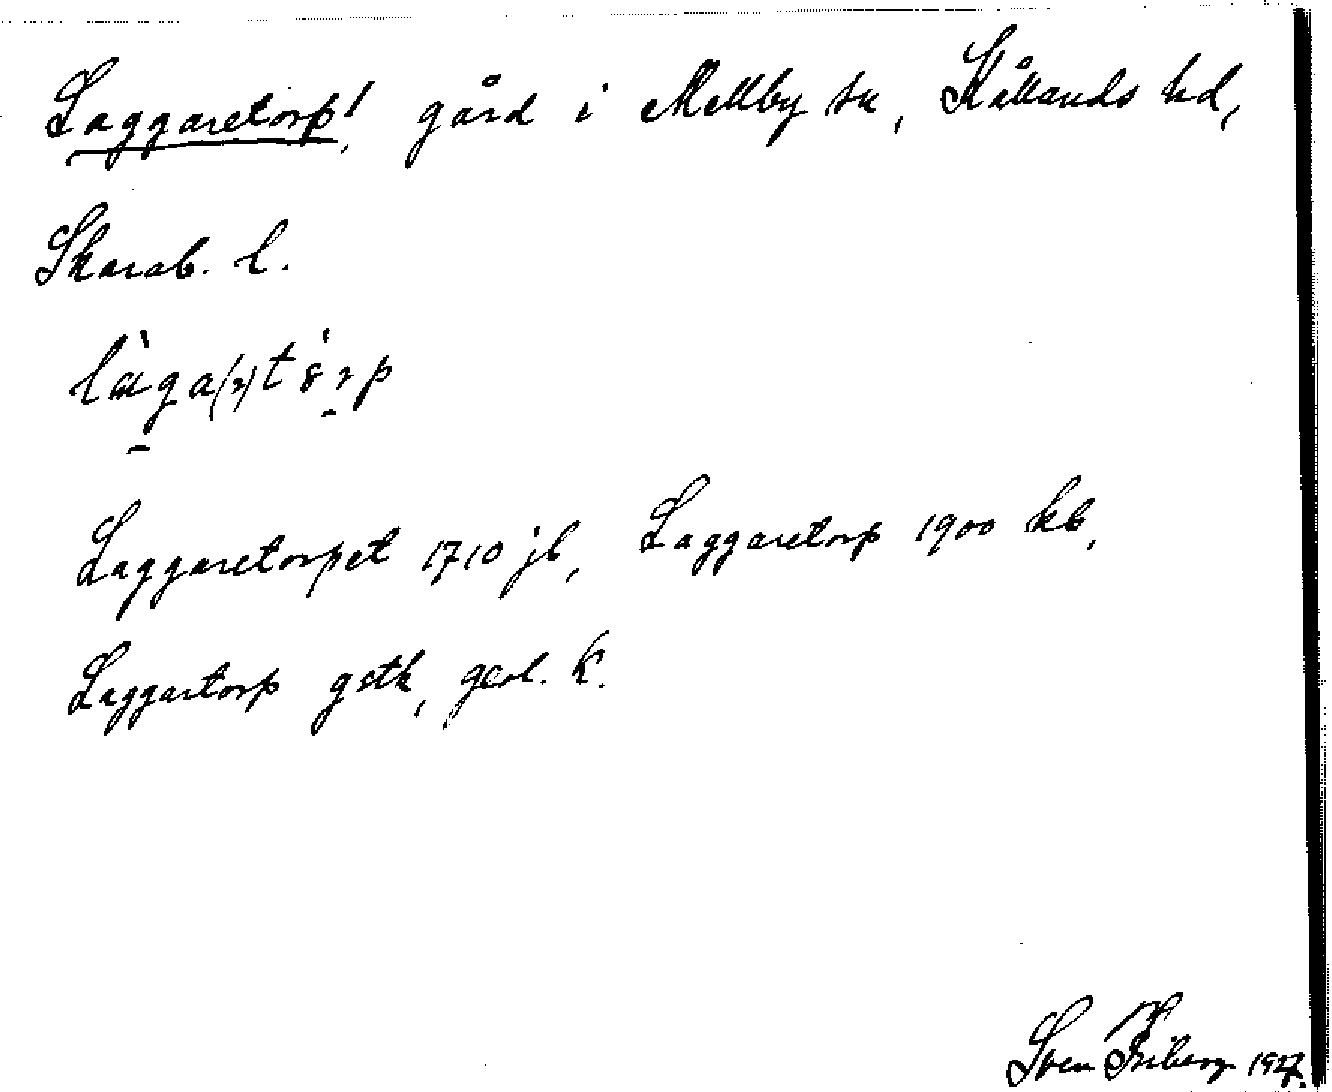 Laggaretorp!, gård i Mellby sn, Kållands hd,
Skarab. l.
Laggaretorpet 1710 jb, Laggaretorp 1900 kb,
Laggartorp gstk, geol. k.
Sven Friberg 1927.